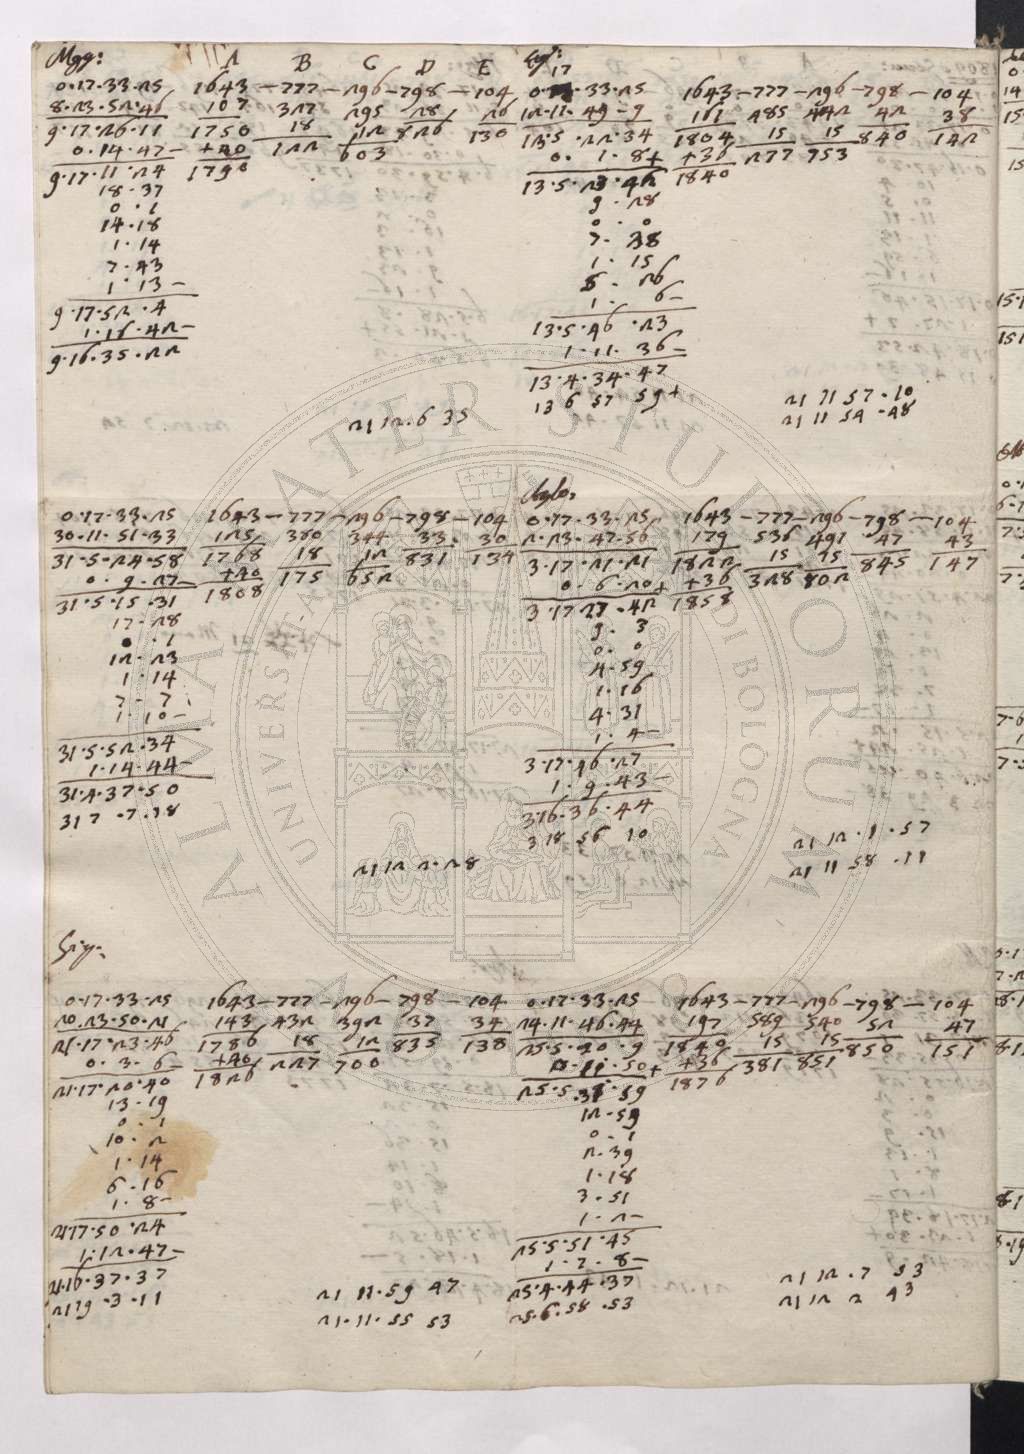 Mgg: A B C D E
0.17.33.25 1643 — 777 — 296 — 798 — 104
8.23.52.46 107 327 295 28 26
9.17.26.11 1750 18 12 826 130
0.14.47- +40 122 603
9.17.11.24 1790
18.37
0.1
14.18
1.14
7.43
1.13-
9.17.52.4
1.16.42-
9.16.35.22
21 12.6 35
17
0.17.33.25 1643 — 777 — 296 — 798 — 104
12.11.49-9 161 485 442 42 38
13.5.22.34 1804 15 15 840 142
0.1.8+ +36 277 753
13.5.23.42 1840
9.28
0.0
7.38
1.15
5.26
1.6-
13.5.46.23
1.11.36-
13.4.34.47
13 6 57 59+
21 11 57.10
21 11 54.48
0.17.33.25 1643 — 777 — 296 — 798 — 104
30.11.51.33 125 380 344 33 30
31.5.24.58 1768 18 12 831 134
0.9.27- +40 175 652
31.5.15.31 1808
17.28
0.1
12.23
1.14
7-7
1.10-
31.5.52.34
1.14.44-
31.4.37.50
31 7.7.18
21 12 2.28
0.17.33.25 1643 — 777 — 296 — 798 — 104
2.23.47.56 179 536 491 47 43
3.17.21.21 1822 15 15 845 147
0.6.20+ +36 328 802
3.17.27.42 1858
9.3
0.0
4.59
1.16
4.31
1.4-
3.17.46.27
1.9.43-
3 16.36.44
3 18 56 10
21 12.1.57
21 11 58.11
Giu:
0.17.33.25 1643 — 777 — 296 — 798 — 104
20.23.50.21 143 432 392 37 34
21.17.23.46 1786 18 12 835 138
0.3.6- +40 227 700
21.17.20.40 1826
13.19
0.1
10.2
1.14
6.16
1.8-
21 17.50.24
1.12.47-
21.16.37.37
21 19.3.11
21 11.59 47
21.11.55 53
0.17.33.25 1643 — 777 — 296 — 798 — 104
24.11.46.44 197 589 540 52 47
25.5.20.9 1840 15 15 850 151
0.11.50+ +36 381 851
25.5.31.59 1876
12.59
0.1
2.39
1.18
3.51
1.2-
25.5.51.45
1.7.8-
25.4.44.37
25.6.58.53
21 12.7 53
21 12 2 43
ALMA MATER STUDIORUM
UNIVERSITÀ DI BOLOGNA